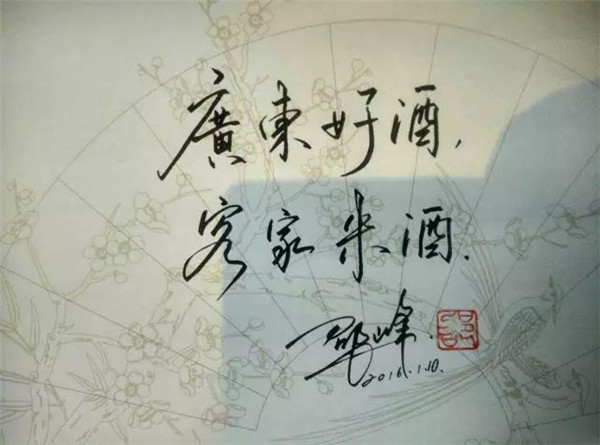 廣東好酒,
客家米酒.
邵峰.
2016.1.10.